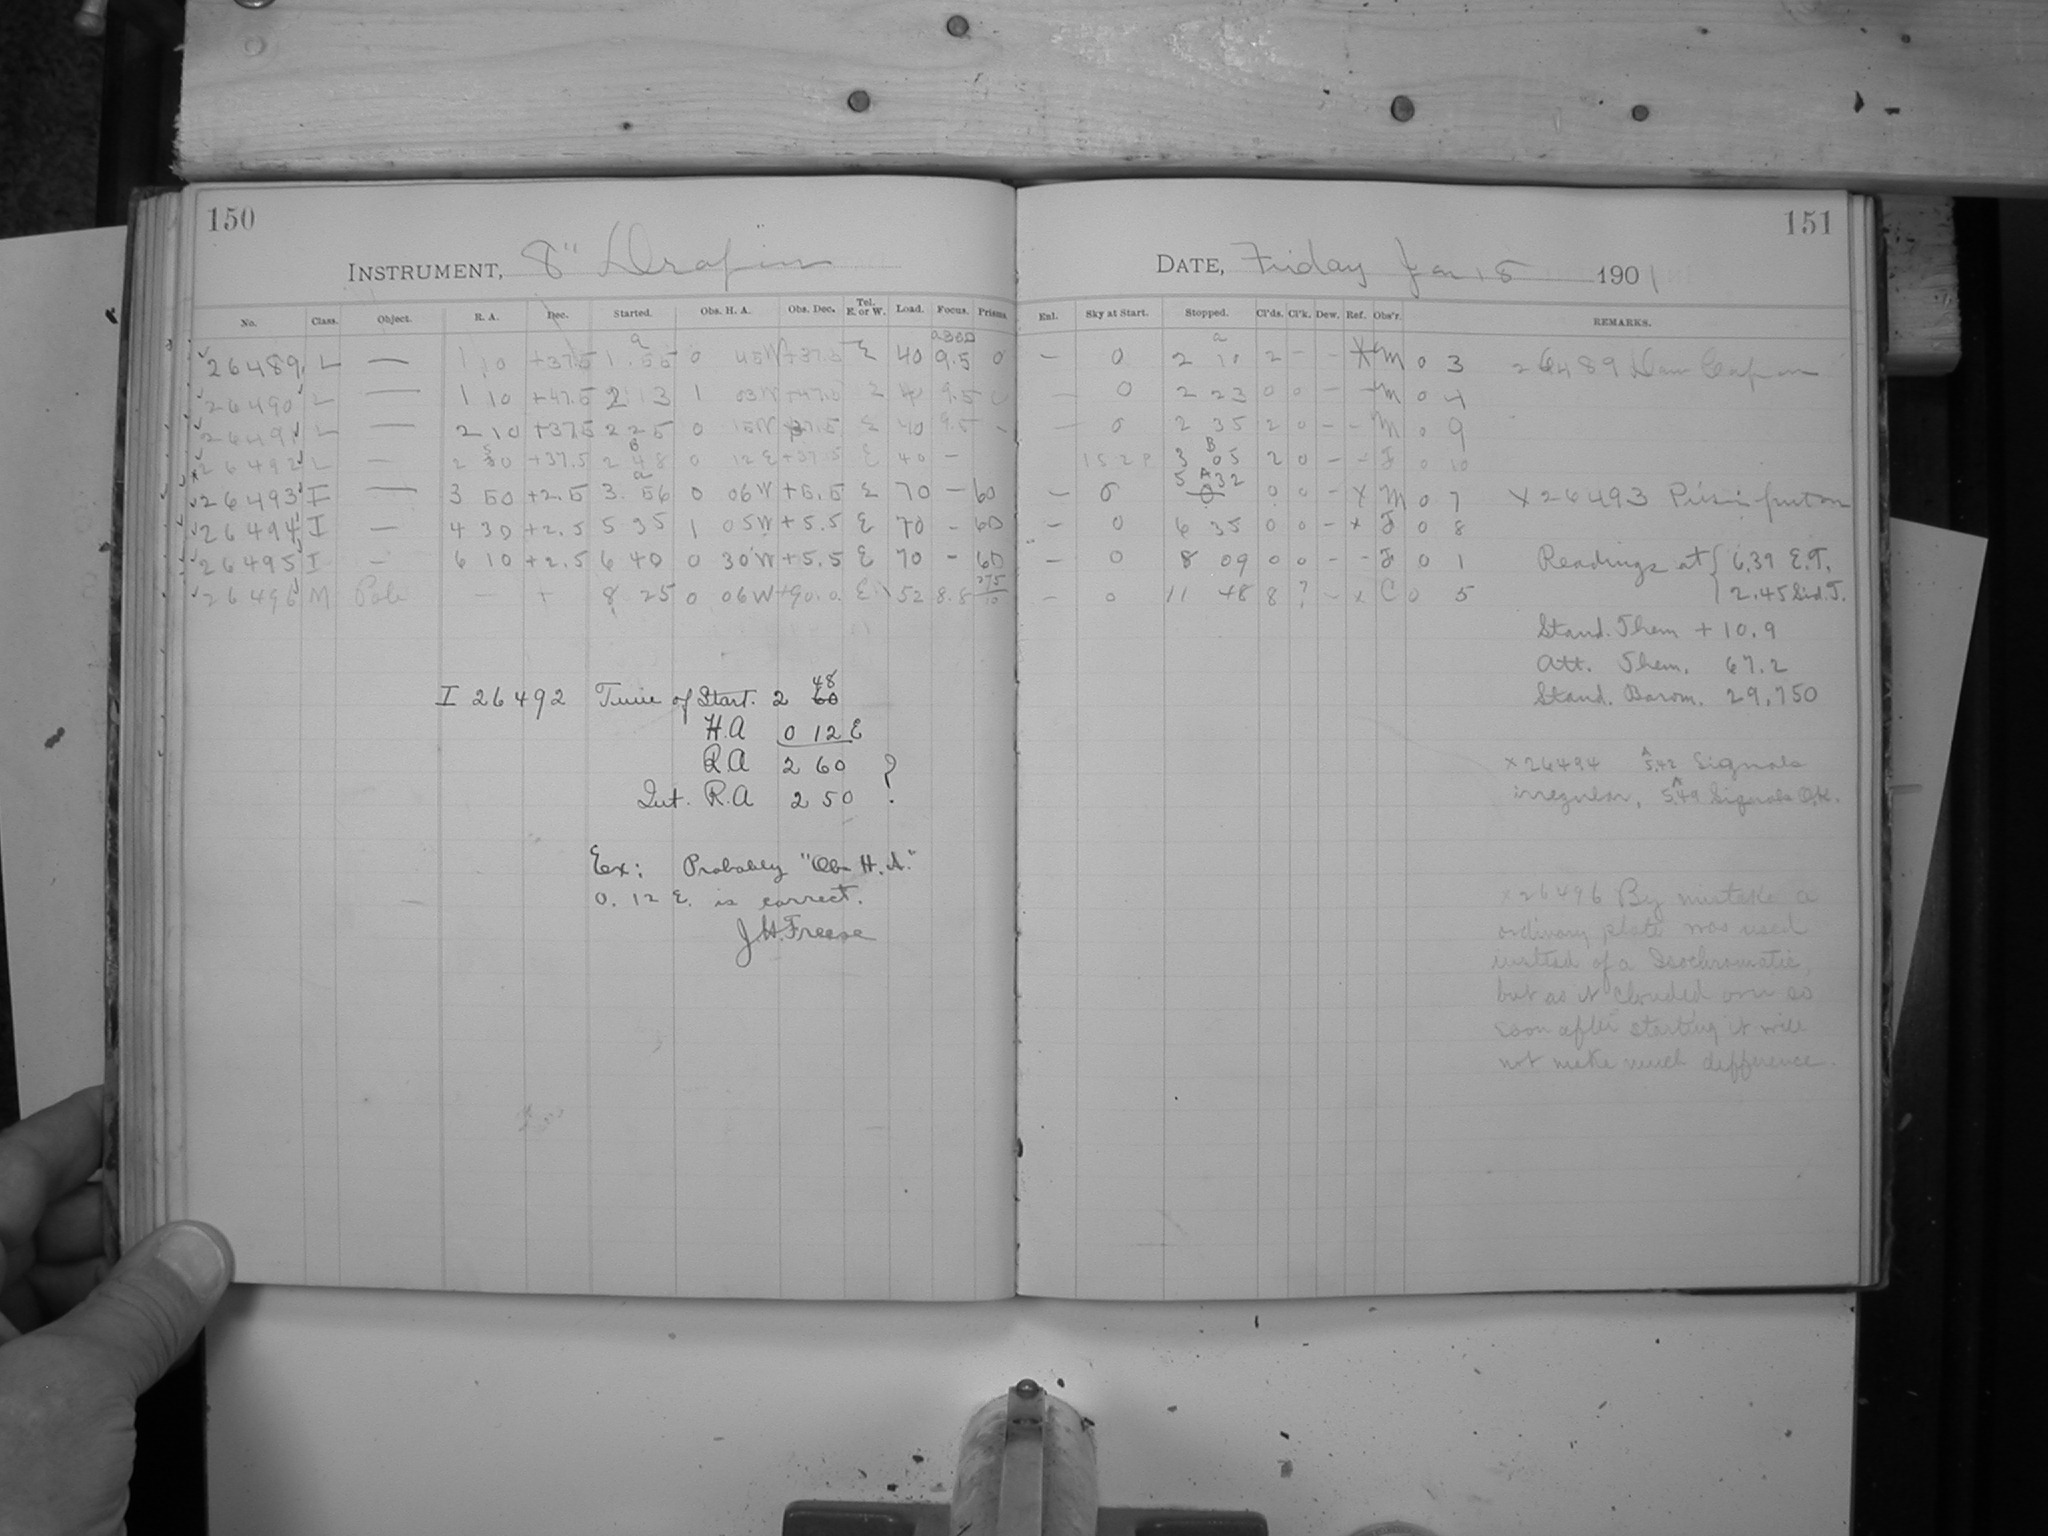 150
INSTRUMENT, 8"
No. Class. Object. R. A. Dec. Started. Obs. H. A. Obs. Dec. Tel. E. or W. Load. Focus. Prisms.
26489 L — 1 10 +37.5 1 55 0 45W +37.5 E 40 9.5 0
26490 L — 1 10 +47.5 2 13 1 03W 40 9.5
26491 L — 2 10 +37.5 2 25 0 15W E 40 9.5 -
26492 L — 2 50 +37.5 2 48 0 12 E +37.5 E 40 -
26493 I — 3 50 +2.5 3. 56 0 06W +5.5 E 70 - 60
26494 I — 4 30 +2.5 5 35 1 05W +5.5 E 70 - 60
26495 I - 6 10 +2.5 6 40 0 30W +5.5 E 70 - 60
26496 M Pole - + 8 25 0 06W +90.0 E 52 8.8
I 26492 Time of Start. 2 48
H.A 0 12 E
R.A 2 60 ?
Int. R.A 2 50
Ex: Probably "Obs H. A."
0. 12 E. is correct.
J.H.Freese
151
DATE, Friday Jan 18 1901
Enl. Sky at Start. Stopped. Cl'ds. Cl'k. Dew. Ref. Obs'r. REMARKS.
- 0 2 10 2 - - X M 0 3 26489
- 0 2 23 0 0 - M 0 4
- 0 2 35 2 0 - - M 0 9
3 05 2 0 - - F 0 10
- 0 5 32 0 0 - X M 0 7 X 26493
- 0 6 35 0 0 - x F 0 8
- 0 8 09 0 0 - - F 0 1 Readings at { 6.39 E.T.
- 0 11 48 8 ? - x C 0 5 2.45 Sid. T.
Stand. Them + 10.9
Att. Them. 67.2
Stand. Barom. 29,750
x 26494 A 5.42 Signals
irregular, A 5.49 Signals O.K.
x 26496 By mistake a
ordinary plate was used
instead of a Isochromatic,
but as it clouded over so
soon after starting it will
not make much difference.